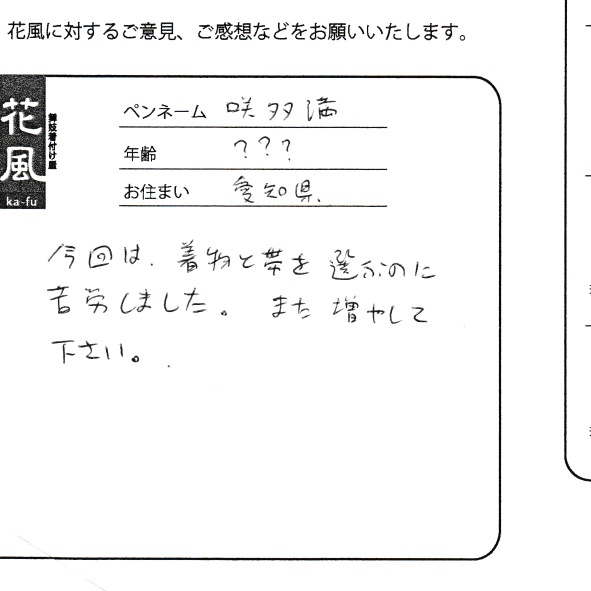 花風に対するご意見、ご感想などをお願いいたします。
花風
ka-fu
舞妓着付け屋
ペンネーム 咲多満
年齢 ???
お住まい 愛知県.
今回は、着物と帯を選ぶのに
苦労しました。また増やして
下さい。